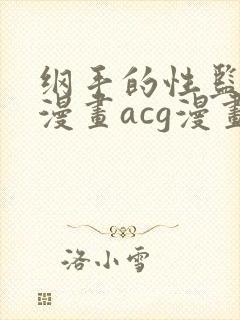 纲手的性监
漫畫acg漫畫
洛小雪